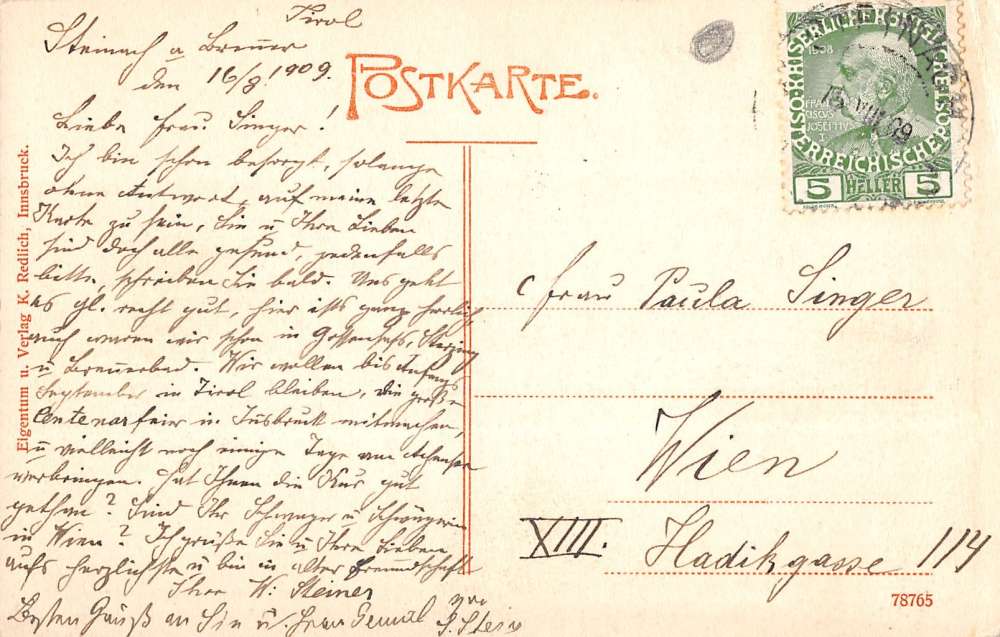 Tirol
Steinach a Brenner
den 16/8 1909.
POSTKARTE.
Liebe Frau Singer!
Ich bin schon besorgt, solange
ohne Antwort auf meine letzte
Karte zu sein, Sie u Ihre Lieben
sind doch alle gesund, jedenfalls
bitte, schreiben Sie bald. Uns geht
es gl. recht gut, hier ists ganz herrlich,
auch waren wir schon in Gossensass, Sterzing
u Brennerbad. Wir wollen bis Anfangs
September in Tirol bleiben, die große
Centenarfeier in Insbruck mitmachen,
u vielleicht noch einige Tage am Achensee
verbringen. Hat Ihnen die Kur gut
gethan? Sind Ihr Schwager u Schwägerin
in Wien? Ich grüße Sie u Ihre Lieben
aufs herzlichste u bin in alter Freundschaft
Ihre W. Steiner
Besten Gruß an Sie u. Herrn Gemal von
Eigentum u. Verlag K. Redlich, Innsbruck.
KAISERLICHE KÖNIGLICHE ÖSTERREICHISCHE POST
1908
FRAN
CISCVS
IOSEPHVS
I
5 HELLER 5
VIII 09
Frau Paula Singer
Wien
XIII. Hadikgasse 114
78765